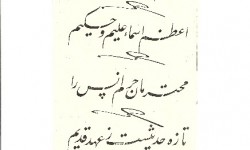 اعظم اسماء علیم و حکیم
محترمان حرم انس را
تازه حدیثیست ز عهد قدیم